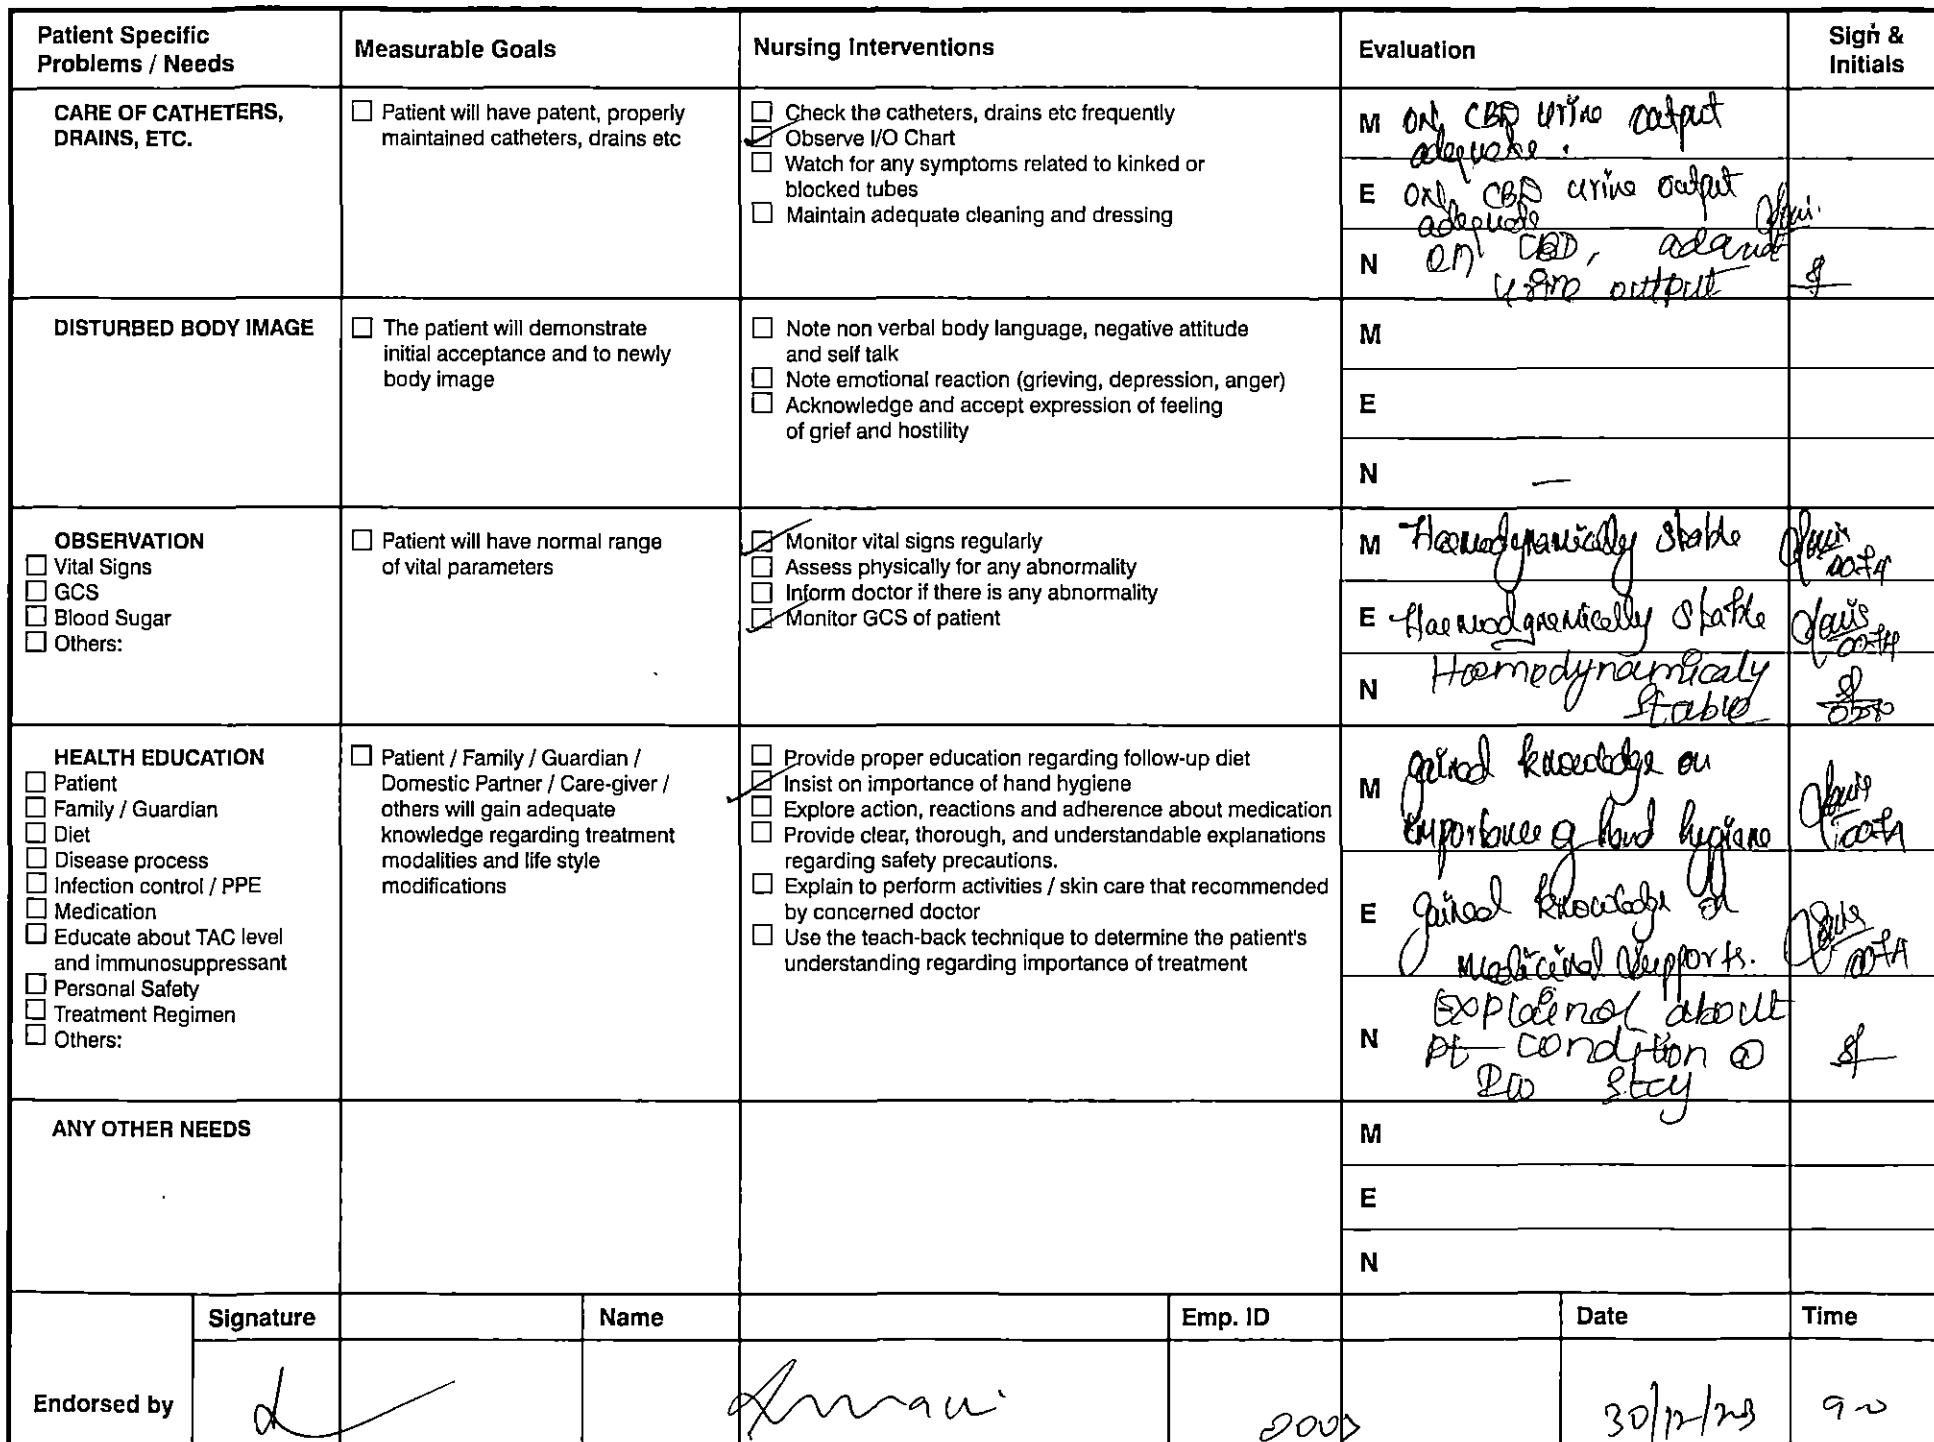 Patient Specific
Problems / Needs
Measurable Goals
Nursing Interventions
Evaluation
Sign &
Initials
CARE OF CATHETERS,
DRAINS, ETC.
☐ Patient will have patent, properly
maintained catheters, drains etc
☐ Check the catheters, drains etc frequently
☑ Observe I/O Chart
☐ Watch for any symptoms related to kinked or
blocked tubes
☐ Maintain adequate cleaning and dressing
M on CBD urine output
adequate.
E on CBD urine output
adequate
N on CBD,
urine output
DISTURBED BODY IMAGE
☐ The patient will demonstrate
initial acceptance and to newly
body image
☐ Note non verbal body language, negative attitude
and self talk
☐ Note emotional reaction (grieving, depression, anger)
☐ Acknowledge and accept expression of feeling
of grief and hostility
M
E
N —
OBSERVATION
☐ Vital Signs
☐ GCS
☐ Blood Sugar
☐ Others:
☐ Patient will have normal range
of vital parameters
☑ Monitor vital signs regularly
☐ Assess physically for any abnormality
☐ Inform doctor if there is any abnormality
☑ Monitor GCS of patient
M Haemodynamically stable
E Haemodynamically stable
N Haemodynamicaly
stable
HEALTH EDUCATION
☐ Patient
☐ Family / Guardian
☐ Diet
☐ Disease process
☐ Infection control / PPE
☐ Medication
☐ Educate about TAC level
and immunosuppressant
☐ Personal Safety
☐ Treatment Regimen
☐ Others:
☐ Patient / Family / Guardian /
Domestic Partner / Care-giver /
others will gain adequate
knowledge regarding treatment
modalities and life style
modifications
☐ Provide proper education regarding follow-up diet
☑ Insist on importance of hand hygiene
☐ Explore action, reactions and adherence about medication
☐ Provide clear, thorough, and understandable explanations
regarding safety precautions.
☐ Explain to perform activities / skin care that recommended
by concerned doctor
☐ Use the teach-back technique to determine the patient's
understanding regarding importance of treatment
M gained knowledge on
importance of hand hygiene
E gained knowledge on
medicinal supports.
N Explained about
pt condition
stay
ANY OTHER NEEDS
M
E
N
Signature
Name
Emp. ID
Date
Time
Endorsed by
30/12/23